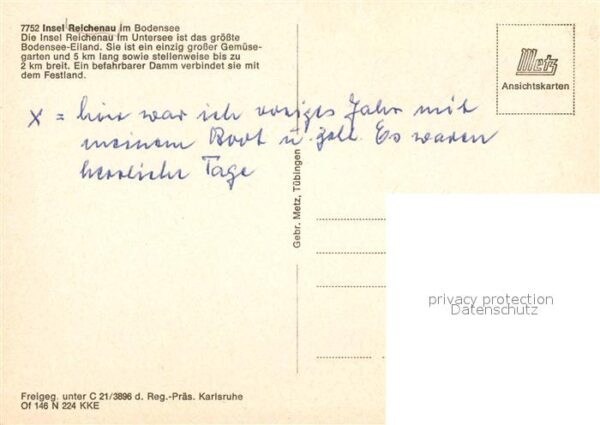 7752 Insel Reichenau im Bodensee
Die Insel Reichenau im Untersee ist das größte
Bodensee-Eiland. Sie ist ein einzig großer Gemüse-
garten und 5 km lang sowie stellenweise bis zu
2 km breit. Ein befahrbarer Damm verbindet sie mit
dem Festland.
Metz
Ansichtskarten
x = hier war ich voriges Jahr mit
meinem Boot u. Zelt. Es waren
herrliche Tage
Gebr. Metz, Tübingen
privacy protection
Datenschutz
Freigeg. unter C 21/3896 d. Reg.-Präs. Karlsruhe
Of 146 N 224 KKE